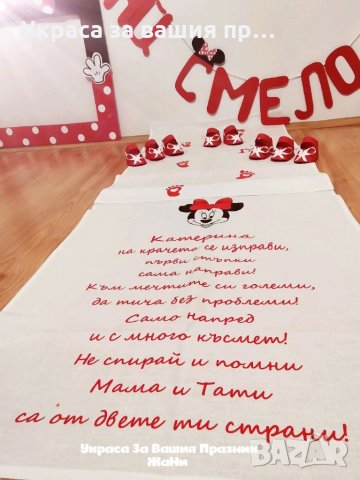 Украса за вашия пр...
СМЕЛО
Катерина
на крачето се изправи,
първи стъпки
сама направи!
Към мечтите си големи,
да тича без проблеми!
Само напред
и с много късмет!
Не спирай и помни
Мама и Тати
са от двете ти страни!
Украса За Вашия Празник
ЖаНи
BAZAR